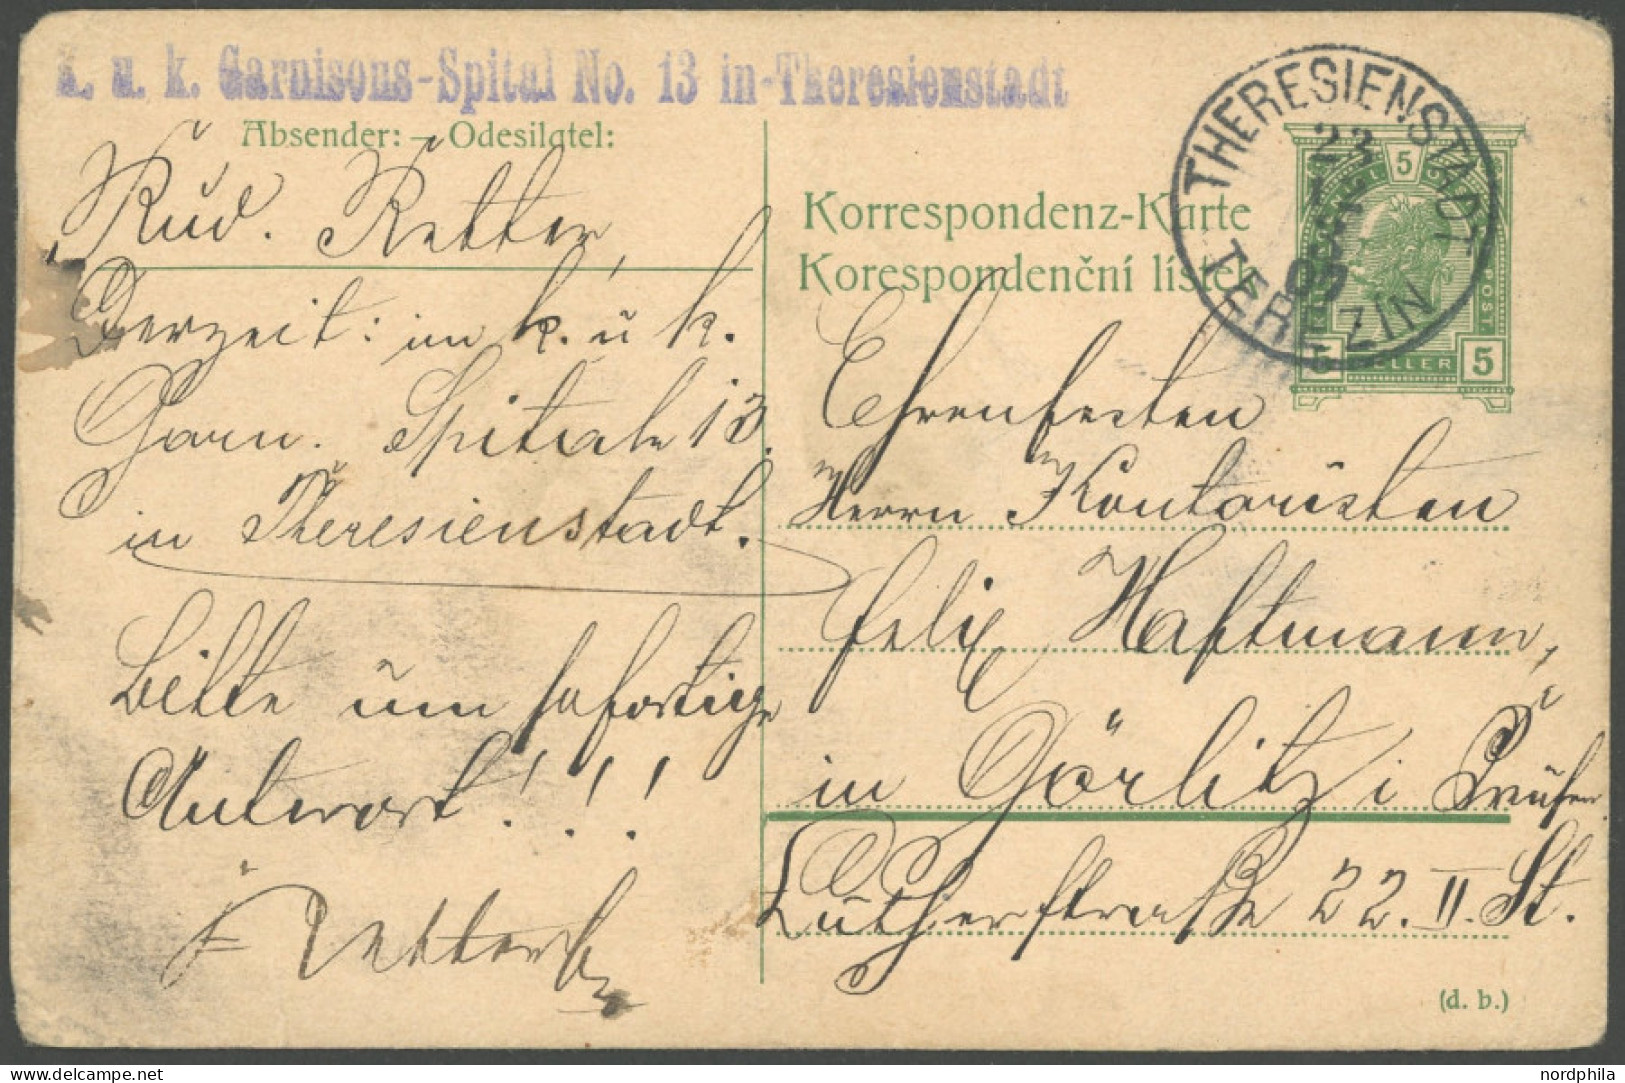 k. u. k. Garnisons-Spital No. 13 in Theresienstadt
Absender: – Odesilatel:
Rud. Retter,
Derzeit: im k. u k.
Garn. Spitale 13.
in Theresienstadt.
Bitte um sofortige
Antwort!!!
Retter
THERESIENSTADT
23
09
TEREZIN
5
5 HELLER 5
POST
Korrespondenz-Karte
Korespondenční lístek
Ehrenfesten
Herrn Kontoristen
Felix Haftmann,
in Görlitz i Preußen
Lutherstraße 22. II. St.
(d. b.)
nordphila
www.delcampe.net